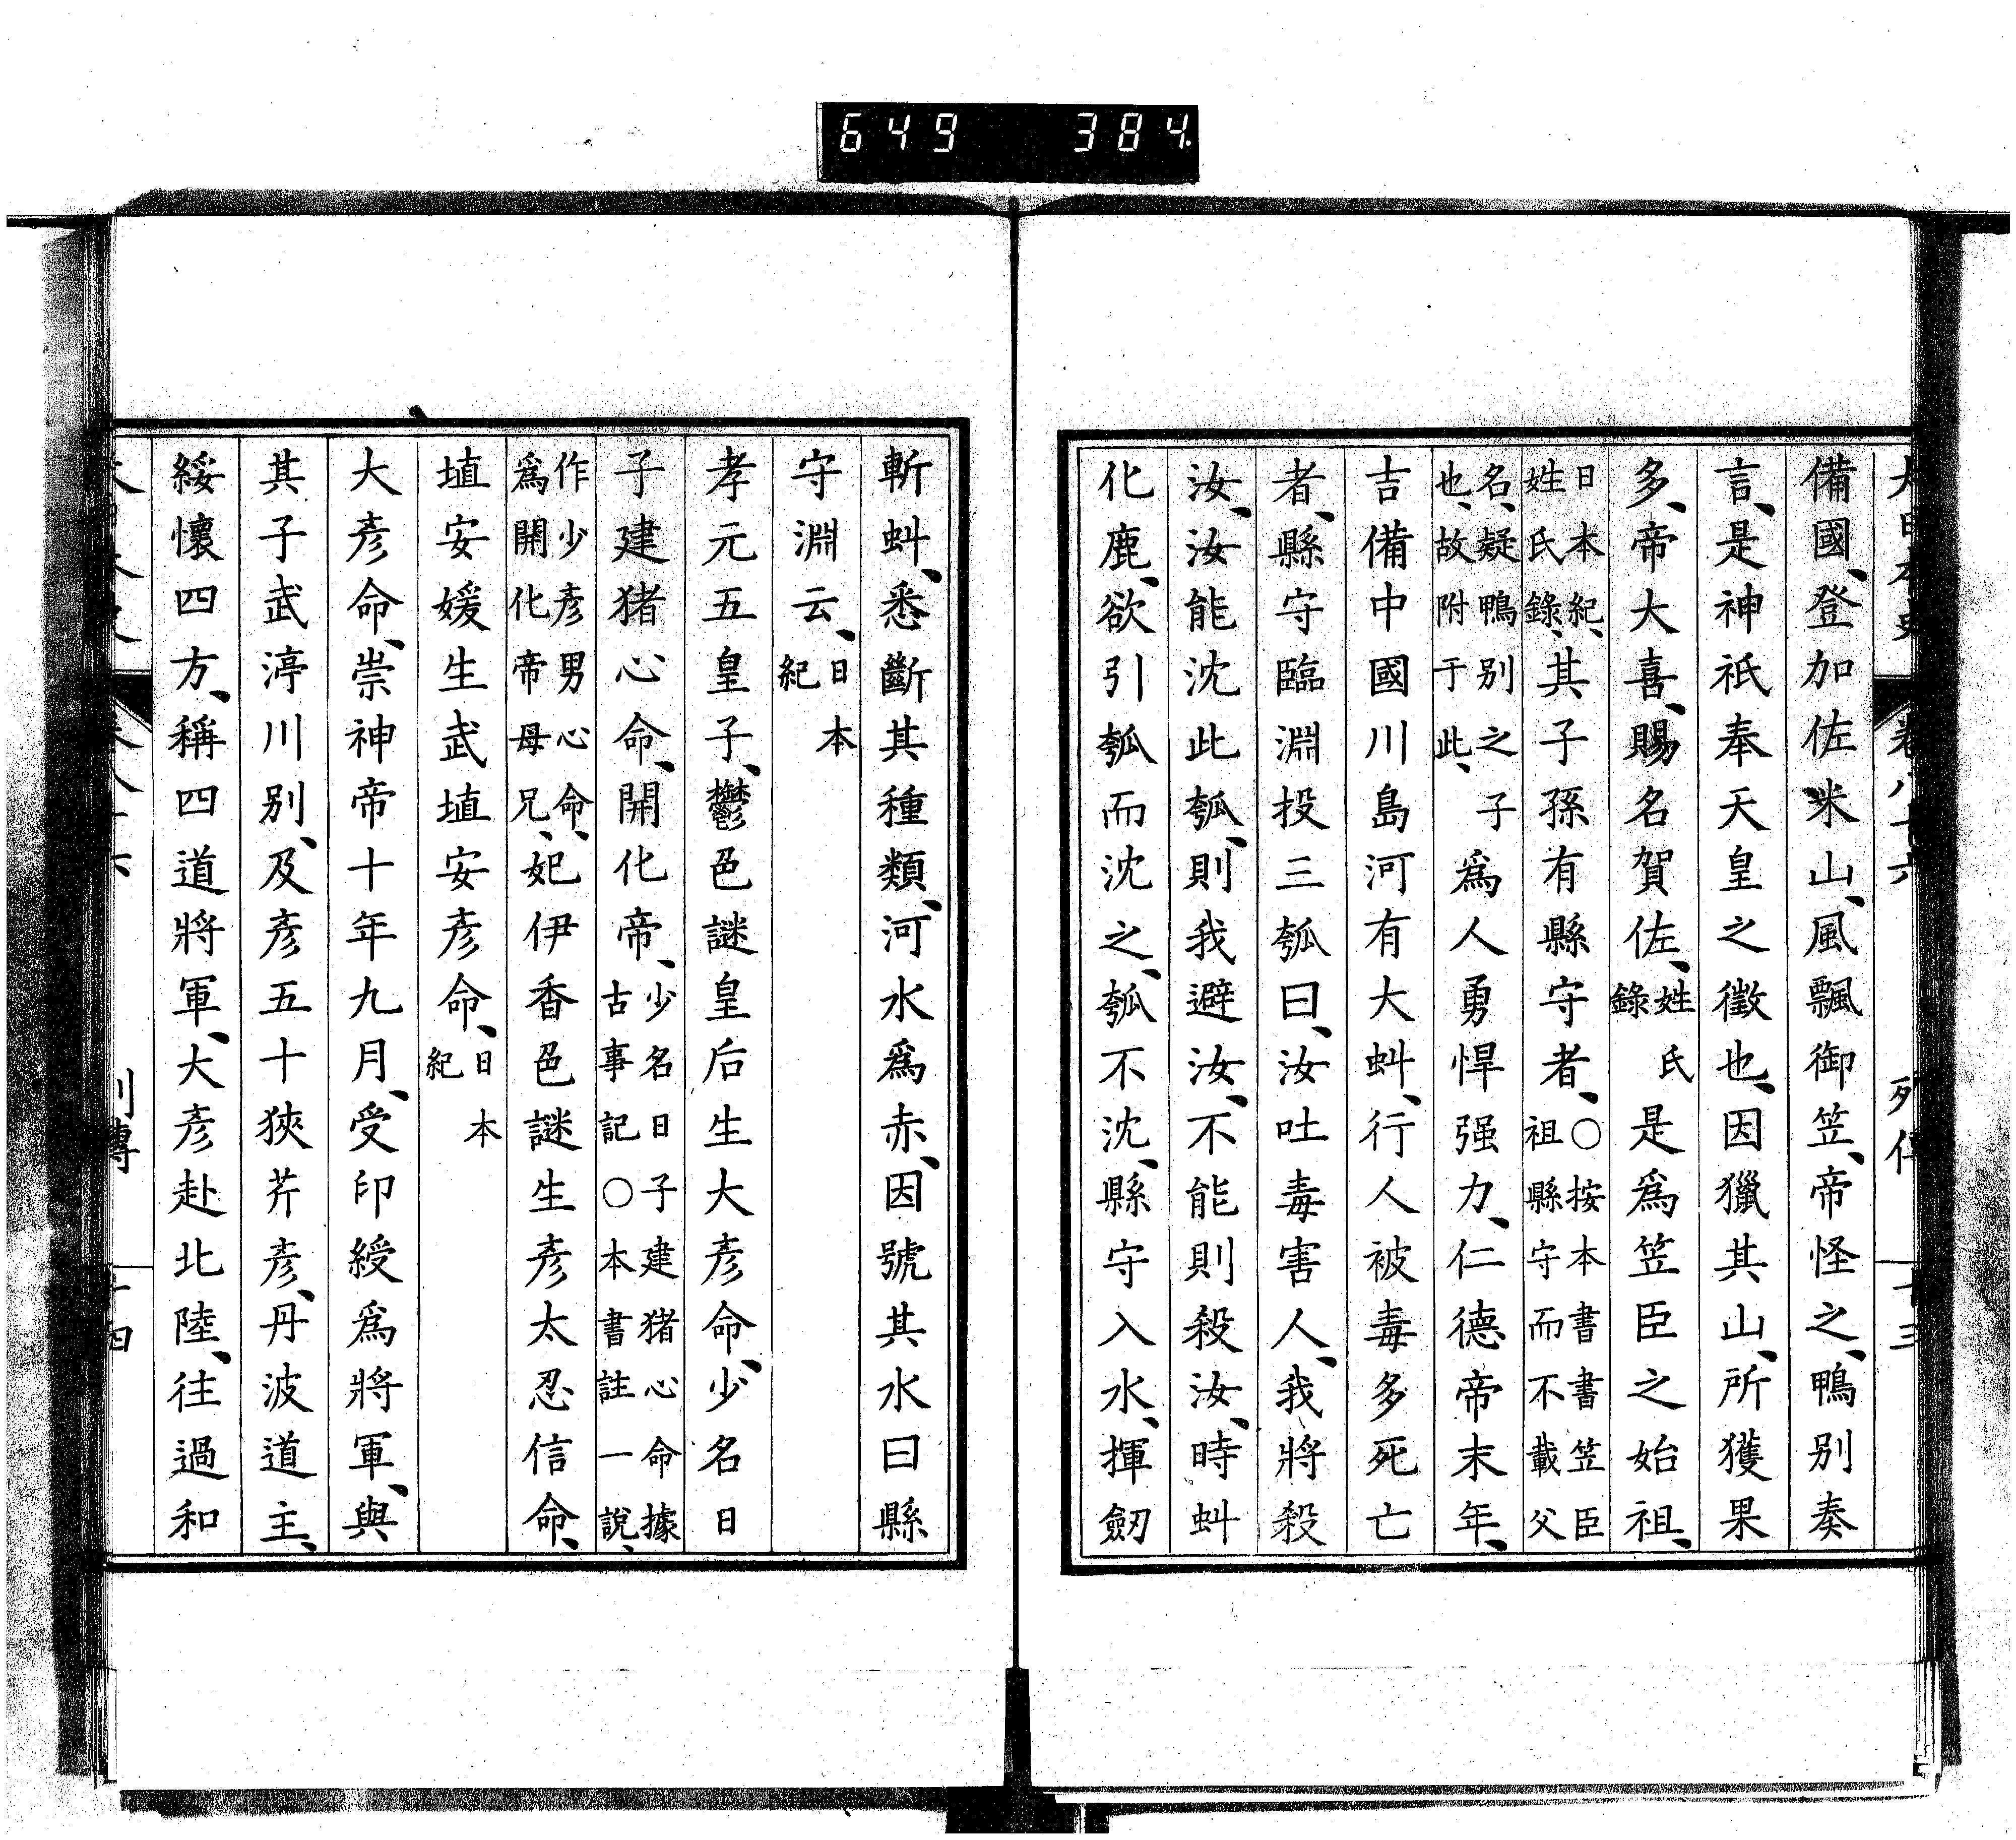 649 384
大日本史 卷八十六 列傳 十三
備國、登加佐米山、風飄御笠、帝怪之、鴨別奏
言、是神祇奉天皇之徵也、因獵其山、所獲果
多、帝大喜、賜名賀佐、姓氏錄 是爲笠臣之始祖、
日本紀、姓氏錄、其子孫有縣守者、○按本書書笠臣祖縣守而不載父
名、疑鴨別之子也、故附于此、爲人勇悍强力、仁德帝末年、
吉備中國川島河有大虯、行人被毒多死亡
者、縣守臨淵投三瓠曰、汝吐毒害人、我將殺
汝、汝能沈此瓠、則我避汝、不能則殺汝、時虯
化鹿、欲引瓠而沈之、瓠不沈、縣守入水、揮劒
斬虯、悉斷其種類、河水爲赤、因號其水曰縣
守淵云、日本紀
孝元五皇子、鬱色謎皇后生大彥命、少名日
子建猪心命、開化帝、少名日子建猪心命據古事記○本書註一說、
作少彥男心命、爲開化帝母兄、妃伊香色謎生彥太忍信命、
埴安媛生武埴安彥命、日本紀
大彥命、崇神帝十年九月、受印綬爲將軍、與
其子武渟川別、及彥五十狹芹彥、丹波道主、
綏懷四方、稱四道將軍、大彥赴北陸、往過和